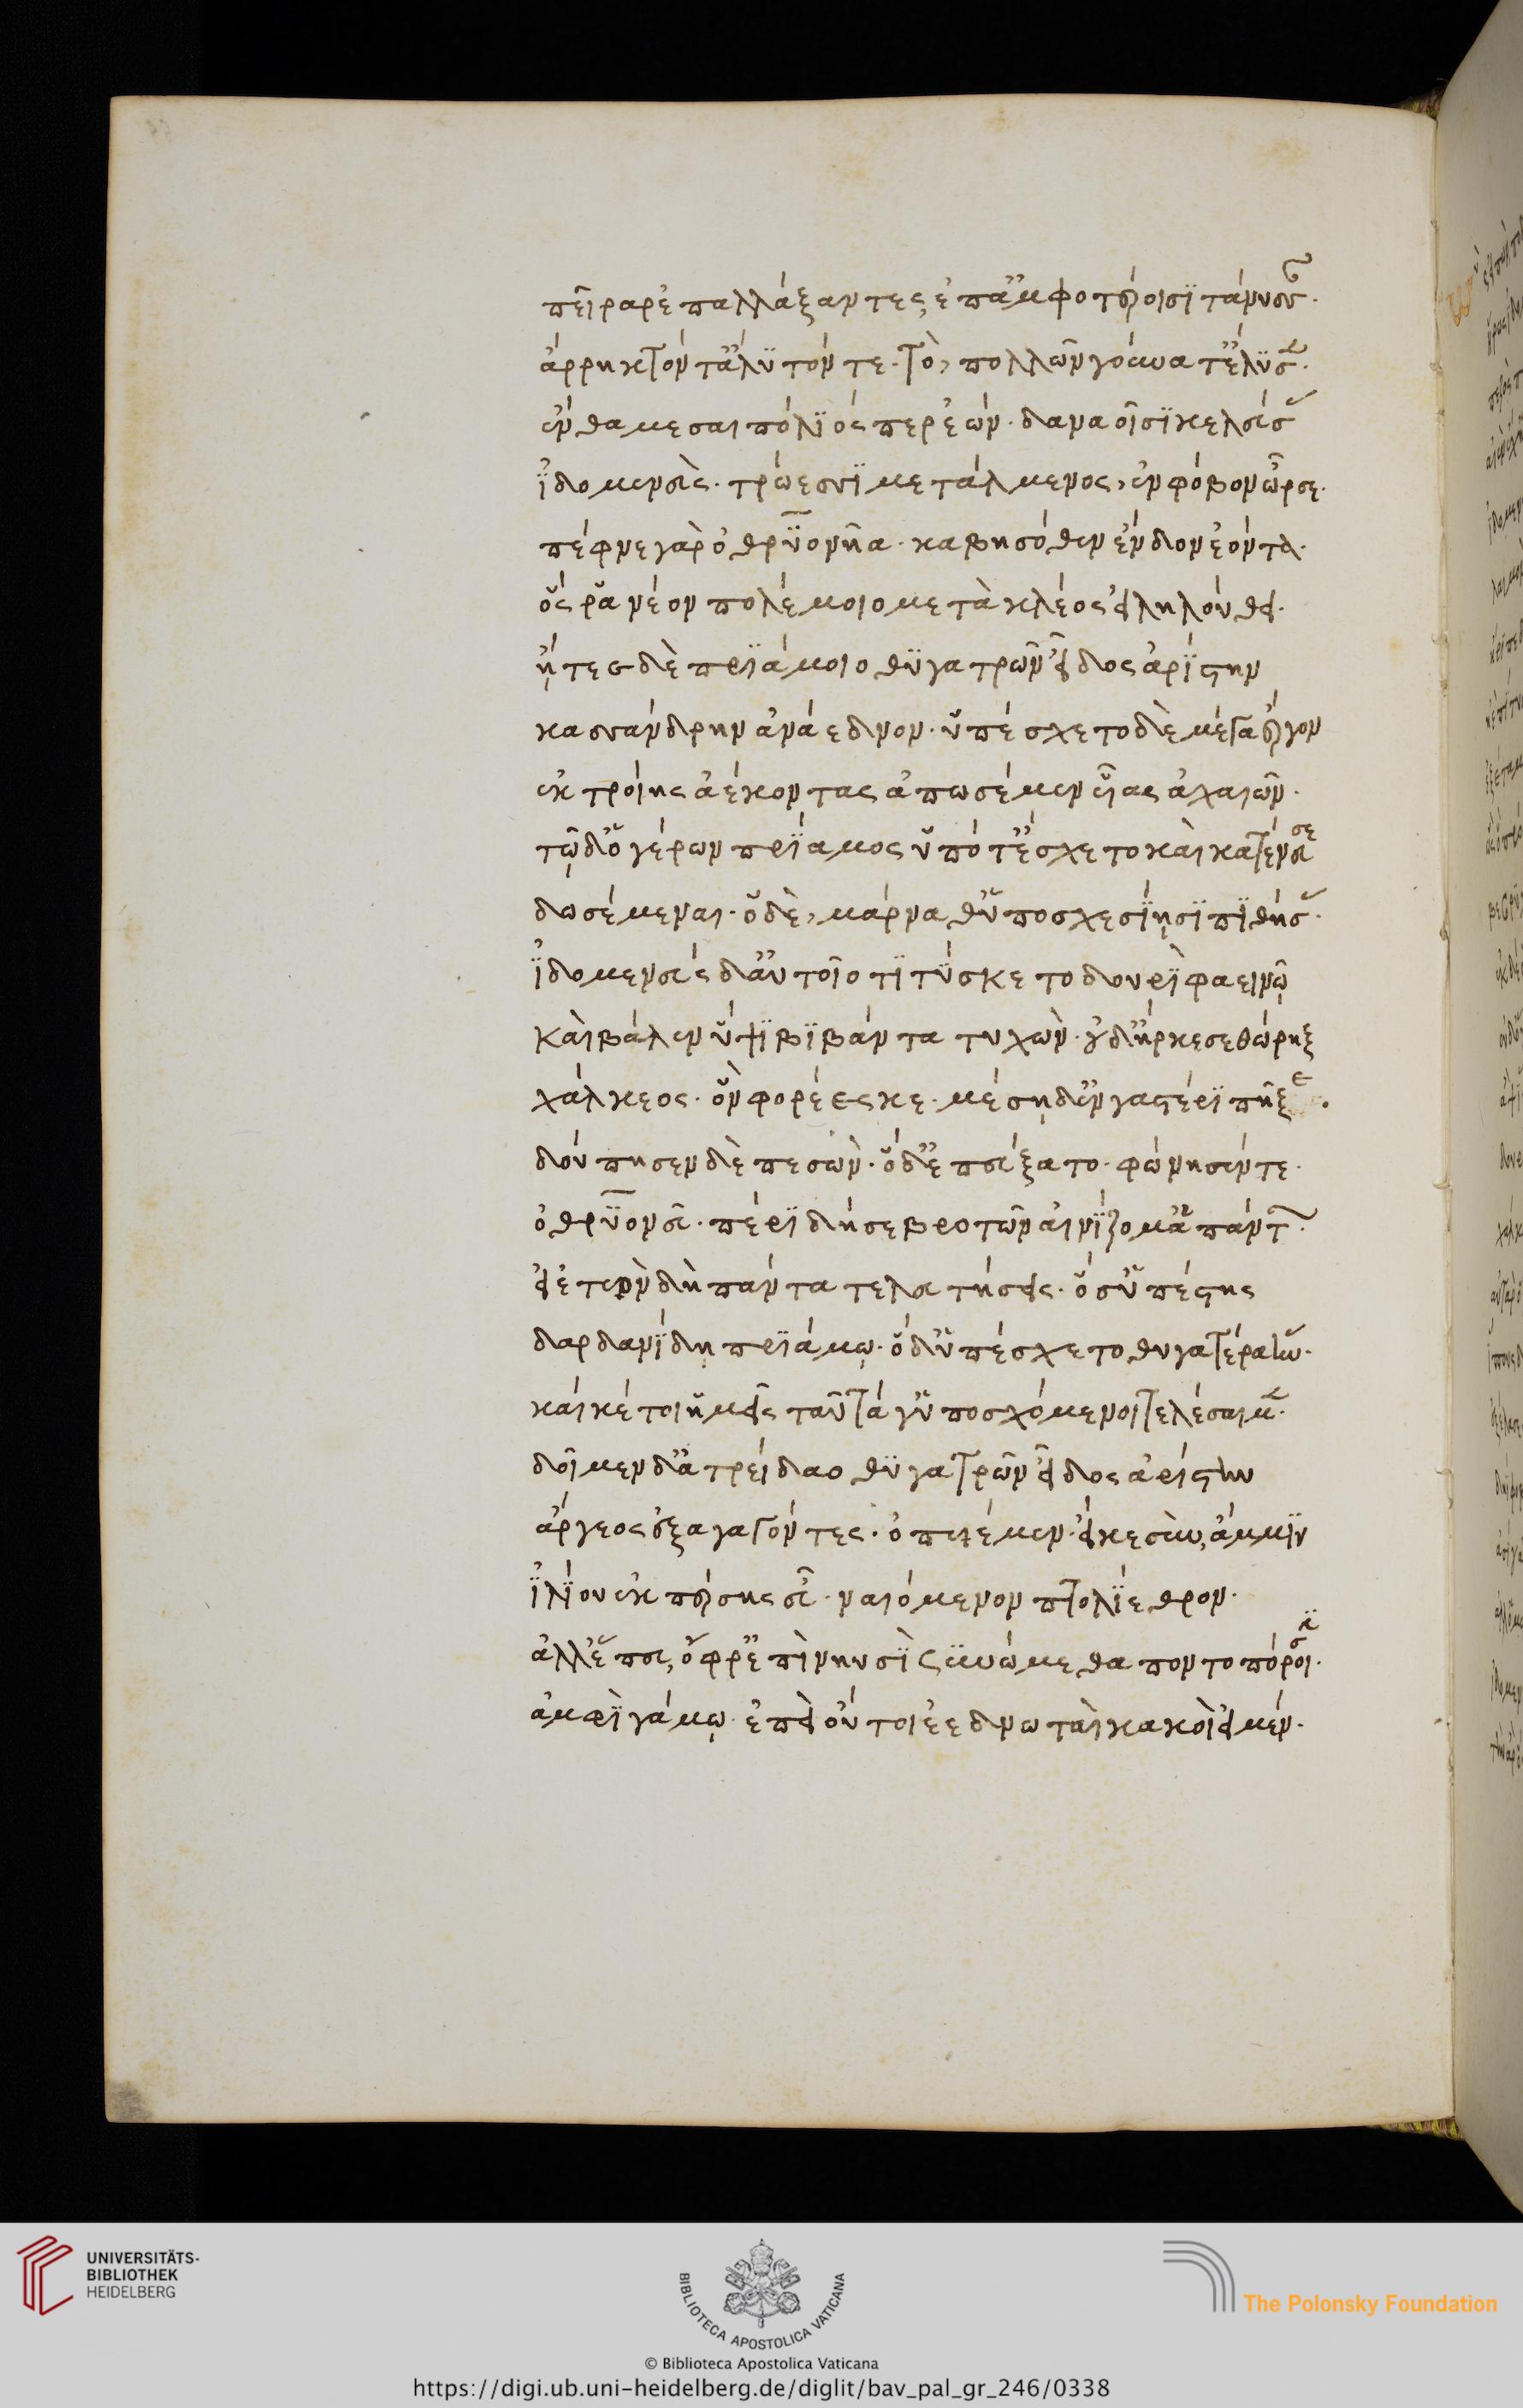 πεῖραρ ἐπαλλάξαντες ἐπ' ἀμφοτέροισϊ τάνυσσαν.
ἄρρηκτόν τ' ἄλϋτόν τε. τὸ, πολλῶν γούνατ' ἔλϋσεν.
ἔνθα μεσαιπόλϊός περ ἐών. δαναοῖσϊ κελεύσας
ἰδομενεὺς. τρώεσσϊ μετάλμενος, ἐν φόβον ὦρσε.
πέφνε γὰρ ὀθρϋονῆα. καβησόθεν ἔνδον ἐόντα.
ὅς ῥα νέον πολέμοιο μετὰ κλέος εἰληλούθει.
ᾔτεε δὲ πρϊάμοιο θϋγατρῶν εἶδος ἀρίστην
κασσάνδρην ἀνάεδνον. ὑπέσχετο δὲ μέγα ἔργον
ἐκ τροίης ἀέκοντας ἀπωσέμεν υἷας ἀχαιῶν.
τῷ δ' ὁ γέρων πρϊαμος ὑπό τ' ἔσχετο καὶ κατένευσε
δωσέμεναι. ὁ δὲ, μάρναθ' ὑποσχεσίῃσϊ πϊθήσας.
ἰδομενεὺς δ' αὐτοῖο τϊτύσκετο δουρῒ φαεινῷ
καὶ βάλεν ὕψϊ βϊβάντα τυχὼν. οὐδ' ἤρκεσε θώρηξ
χάλκεος. ὃν φορέεσκε. μέσῃ δ' ἐν γαστέρϊ πῆξε.
δούπησεν δὲ πεσὼν. ὁ δ' ἐπεύξατο. φώνησέν τε.
ὀθρϋονεῦ. πέρϊ δή σε βροτῶν αἰνίζομ' ἁπάντων.
εἰ ἐτεὸν δὴ πάντα τελευτήσεις. ὅσ' ὑπέστης
δαρδανίδῃ πρϊάμῳ. ὁ δ' ὑπέσχετο θυγατέρα ἥν.
καί κέ τοι ἡμεῖς ταῦτά γ' ὑποσχόμενοι τελέσαιμεν.
δοῖμεν δ' ἀτρείδαο θϋγατρῶν εἶδος ἀρίστην
ἄργεος ἐξαγαγόντες. ὀπυιέμεν. εἴ κε σὺν ἄμμϊν
ἰλίου ἐκπέρσῃς εὖ. ναιόμενον πτολίεθρον.
ἀλλ' ἕπευ, ὄφρ' ἐπὶ νηυσῒ συνώμεθα ποντοπόροισϊν.
ἀμφῒ γάμῳ. ἐπεὶ οὔτοι ἐεδνωταὶ κακοὶ εἰμέν.
UNIVERSITÄTS-
BIBLIOTHEK
HEIDELBERG
BIBLIOTECA APOSTOLICA VATICANA
The Polonsky Foundation
© Biblioteca Apostolica Vaticana
https://digi.ub.uni-heidelberg.de/diglit/bav_pal_gr_246/0338